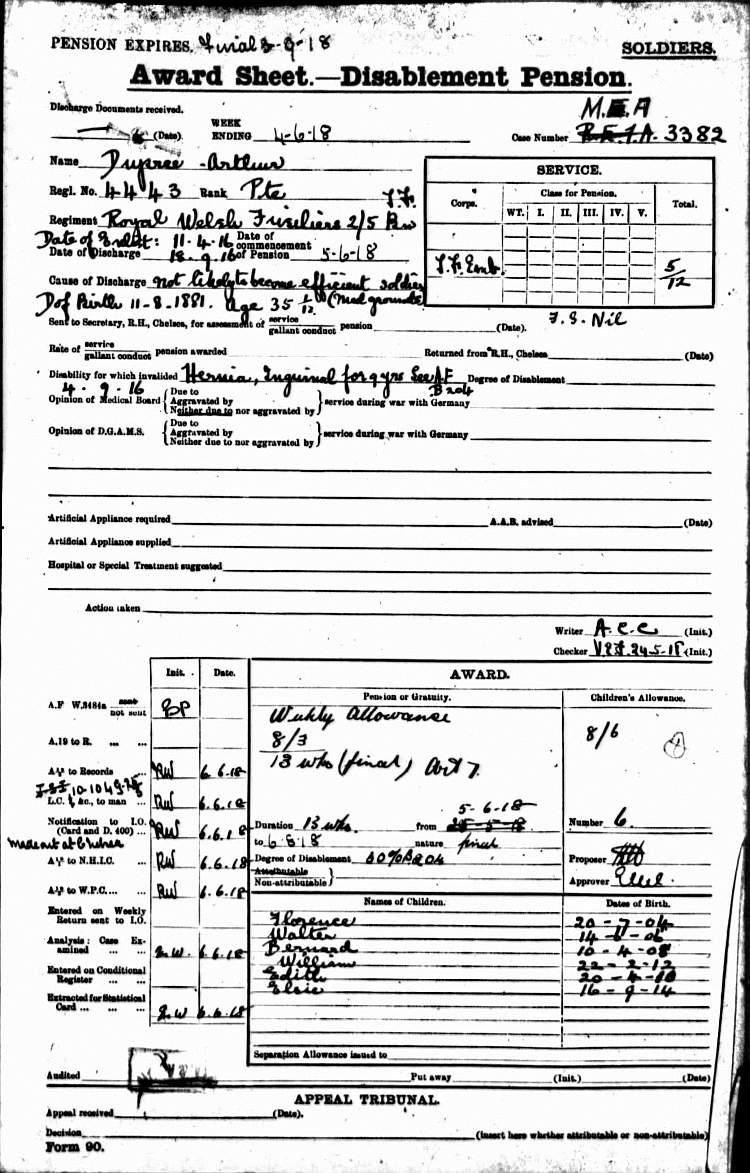 PENSION EXPIRES. Final 3-9-18
SOLDIERS.
Award Sheet.—Disablement Pension.
Discharge Documents received.
(Date).
WEEK ENDING 4-6-18
M.E.A
Case Number R.E.T.A. 3382
Name Dupree - Arthur
Regl. No. 4443 Rank Pte T.F.
Regiment Royal Welsh Fusiliers 2/5 Bn
Date of Enlst: 11.4.16
Date of Discharge 18.9.16
Date of commencement of Pension 5-6-18
Cause of Discharge not likely to become efficient soldier
(Med grounds)
D of Birth 11-8-1881. age 35 1/12
SERVICE.
Corps.
Class for Pension.
WT. I. II. III. IV. V.
Total.
T.F. Emb.
5/12
F.S. Nil
Sent to Secretary, R.H., Chelsea, for assessment of service gallant conduct pension (Date).
Rate of service gallant conduct pension awarded Returned from R.H., Chelsea (Date)
Disability for which invalided Hernia, Inguinal for 9 yrs See AF B204 Degree of Disablement
4.9.16
Opinion of Medical Board
Due to
Aggravated by
Neither due to nor aggravated by
service during war with Germany
Opinion of D.G.A.M.S.
Due to
Aggravated by
Neither due to nor aggravated by
service during war with Germany
Artificial Appliance required A.A.B. advised (Date)
Artificial Appliance supplied
Hospital or Special Treatment suggested
Action taken
Writer A.C.C (Init.)
Checker 24-5-18 (Init.)
Init. Date.
AWARD.
Pension or Gratuity.
Children's Allowance.
A.F W.3484a sent not sent
Weekly Allowance
8/3
13 wks (final) Art 7.
8/6
4
A.19 to R. ... ...
A/2 to Records ... RW 6.6.18
L.C. & &c., to man ... RW 6.6.18
Notification to I.O. (Card and D. 400) ... RW 6.6.18
made out at Chelsea
A/2 to N.H.I.C. ... RW 6.6.18
A/2 to W.P.C.... ... RW 6.6.18
5-6-18
Duration 13 wks. from
to nature final
Degree of Disablement B204
Attributable
Non-attributable
Number 6
Proposer
Approver
Entered on Weekly Return sent to I.O.
Analysis: Case Examined ... ... 6.6.18
Entered on Conditional Register ... ...
Extracted for Statistical Card ... ... ... 6.6.18
Names of Children.
Dates of Birth.
Florence 20-7-04
Walter
Bernard 10-4-08
William 22-2-12
Edith
Elsie 16-9-14
Separation Allowance issued to
Audited Put away (Init.) (Date)
APPEAL TRIBUNAL.
Appeal received (Date).
Decision (insert here whether attributable or non-attributable)
Form 90.